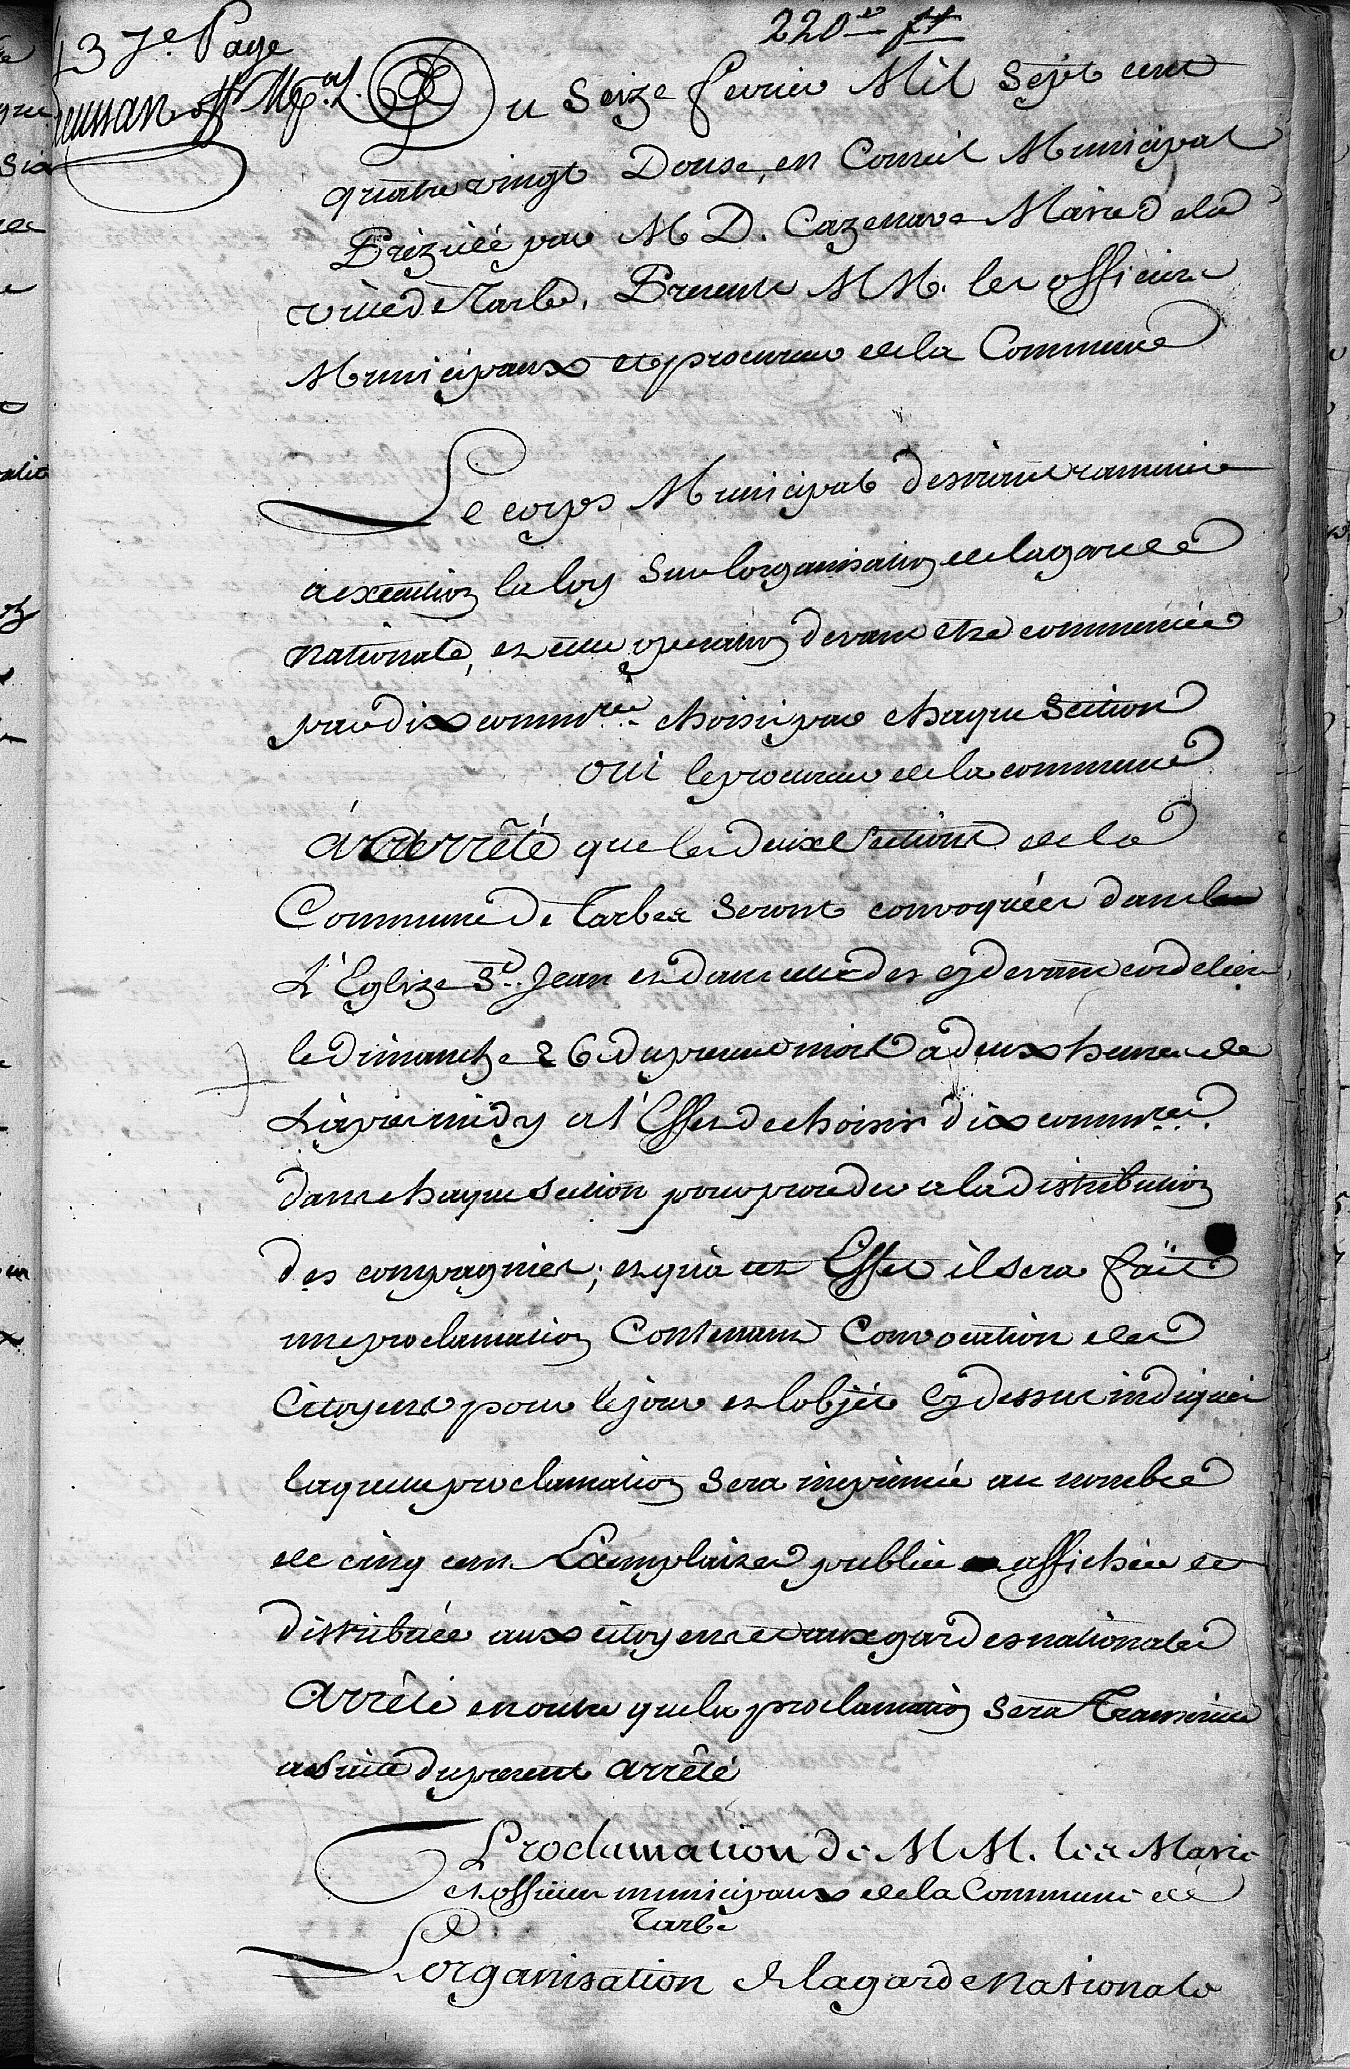 437e. Page
220me ft
Du Seize fevrier Mil Sept cent
quatre vingt Douse, en Conseil Municipal
Prezidé par M D. Cazenave Maire dela
ville de Tarbe, Presents MM. les officiers
Municipaux et procureur de la Commune
Le corps Municipal desirant ramener
a execution la loy Sur lorganisation de la garde
nationale, et cette operation devant etre commencée
par dix commres choisi par chaque Section
oui le procureur de la commune
á arrêté que les deux Sections de la
Commune de Tarbes seront convoquées dans
L'Eglize St. Jean et dans celle des cy devant cordeliers
le dimanche 26 du present mois a deux heures de
L'après midy a l'Effet de choisir dix commres.
dans chaque section pour proceder a la distribution
des compagnies; et qu'a cet Effet il sera fait
une proclamation Contenant Convocation des
Citoyens pour le jour et lobjet cy dessus indiqués
laquelle proclamation sera imprimée au nombre
de cinq cens Exemplaires publiée affichée et
distribuée aux citoyens et aux gardes nationales
Arrêté en outre que la proclamation sera transcrite
a suite du present arrêté
Proclamation de MM. les Maire
et officiers municipaux de la Commune de
Tarbe
L'organisation de la garde Nationale